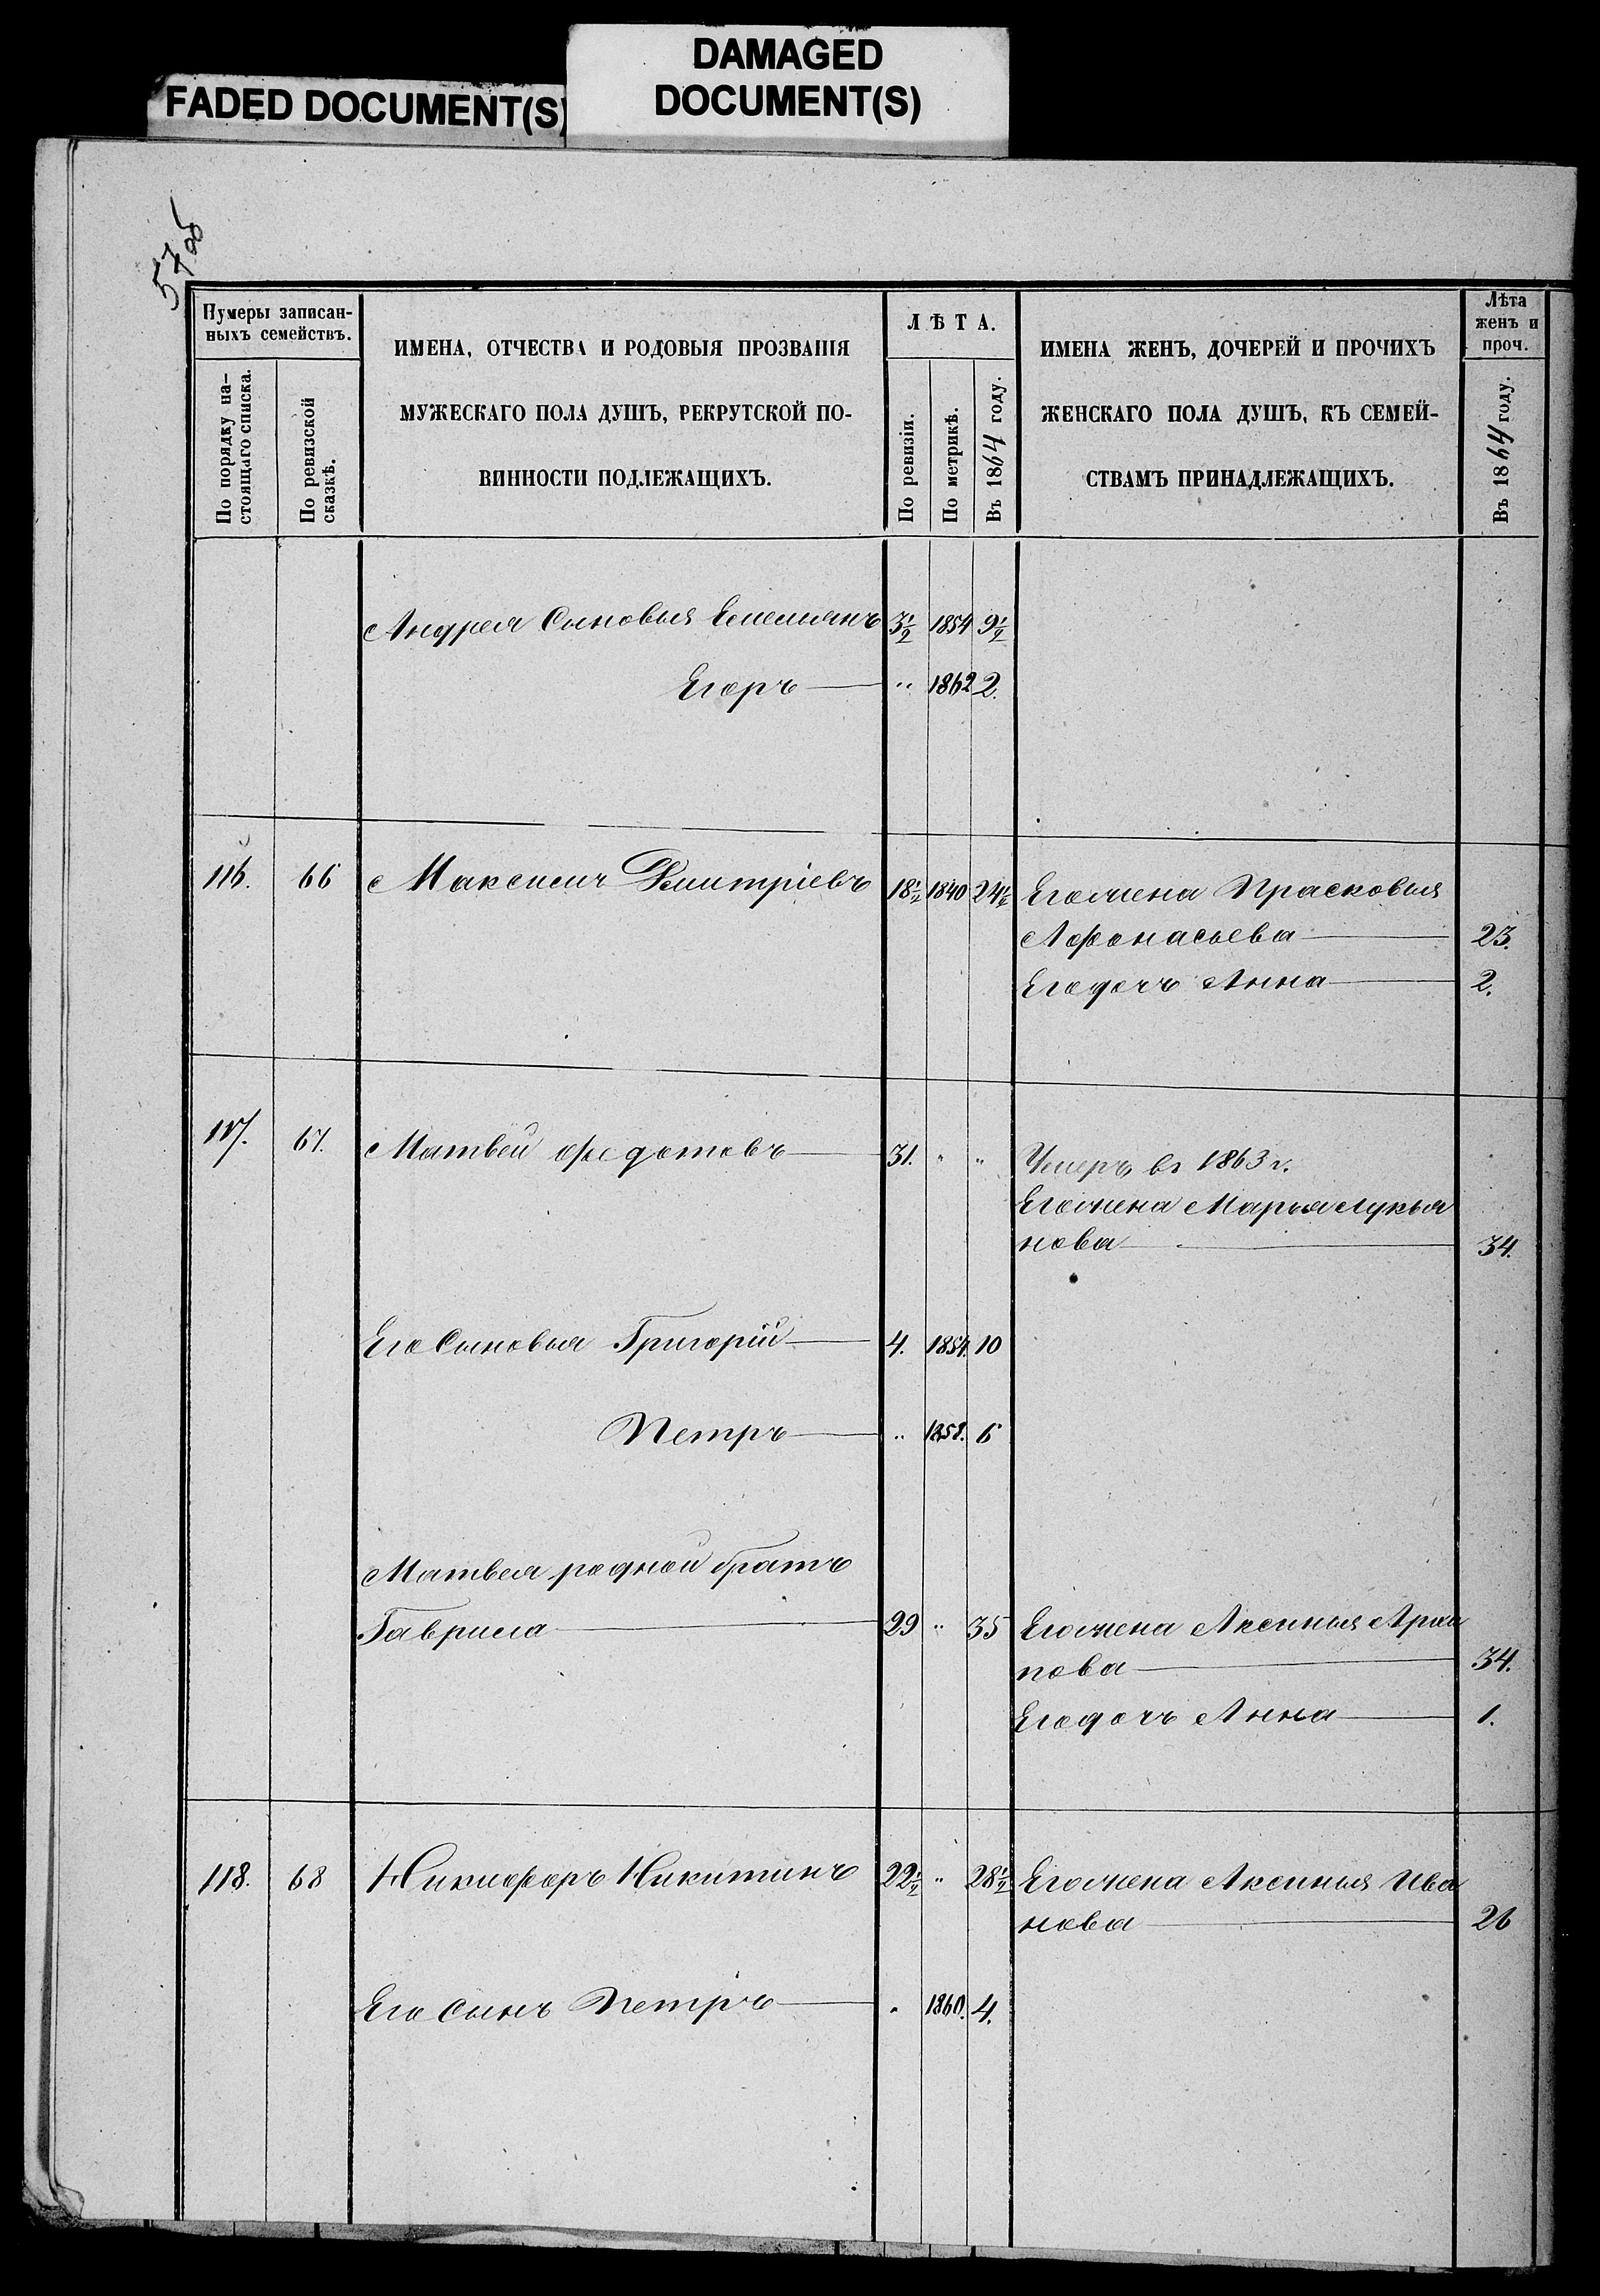 DAMAGED
DOCUMENT(S)
FADED DOCUMENT(S)
57об
Нумеры записан-
ныхъ семействъ.
По порядку на-
стоящаго списка.
По ревизской
сказкѣ.
ИМЕНА, ОТЧЕСТВА И РОДОВЫЯ ПРОЗВАНІЯ
МУЖЕСКАГО ПОЛА ДУШЪ, РЕКРУТСКОЙ ПО-
ВИННОСТИ ПОДЛЕЖАЩИХЪ.
ЛѢТА.
По ревизіи.
По метрикѣ.
Въ 1864 году.
ИМЕНА ЖЕНЪ, ДОЧЕРЕЙ И ПРОЧИХЪ
ЖЕНСКАГО ПОЛА ДУШЪ, КЪ СЕМЕЙ-
СТВАМЪ ПРИНАДЛЕЖАЩИХЪ.
Лѣта
женъ и
проч.
Въ 1864 году.
Андрея Сыновья Емельянъ 3 1/2 1854 9 1/2
Егоръ " 1862 2.
116. 66 Максимъ Дмитріевъ 18 1/2 1840 24 1/2 Его жена Прасковья
Афонасьева 23.
Его дочь Анна 2.
117. 67. Матвей Федотовъ 31. " " Умеръ въ 1863 г.
Его жена Марья Лукья
нова 34.
Его Сыновья Григорій 4. 1854. 10
Петръ " 1858. 6
Матвея родной братъ
Гаврила 29 " 35 Его жена Аксинья Архи
пова 34.
Его дочь Анна 1.
118. 68 Никифоръ Никитинъ 22 1/2 " 28 1/2 Его жена Аксинья Ива
нова 26
Его Сынъ Петръ " 1860. 4.